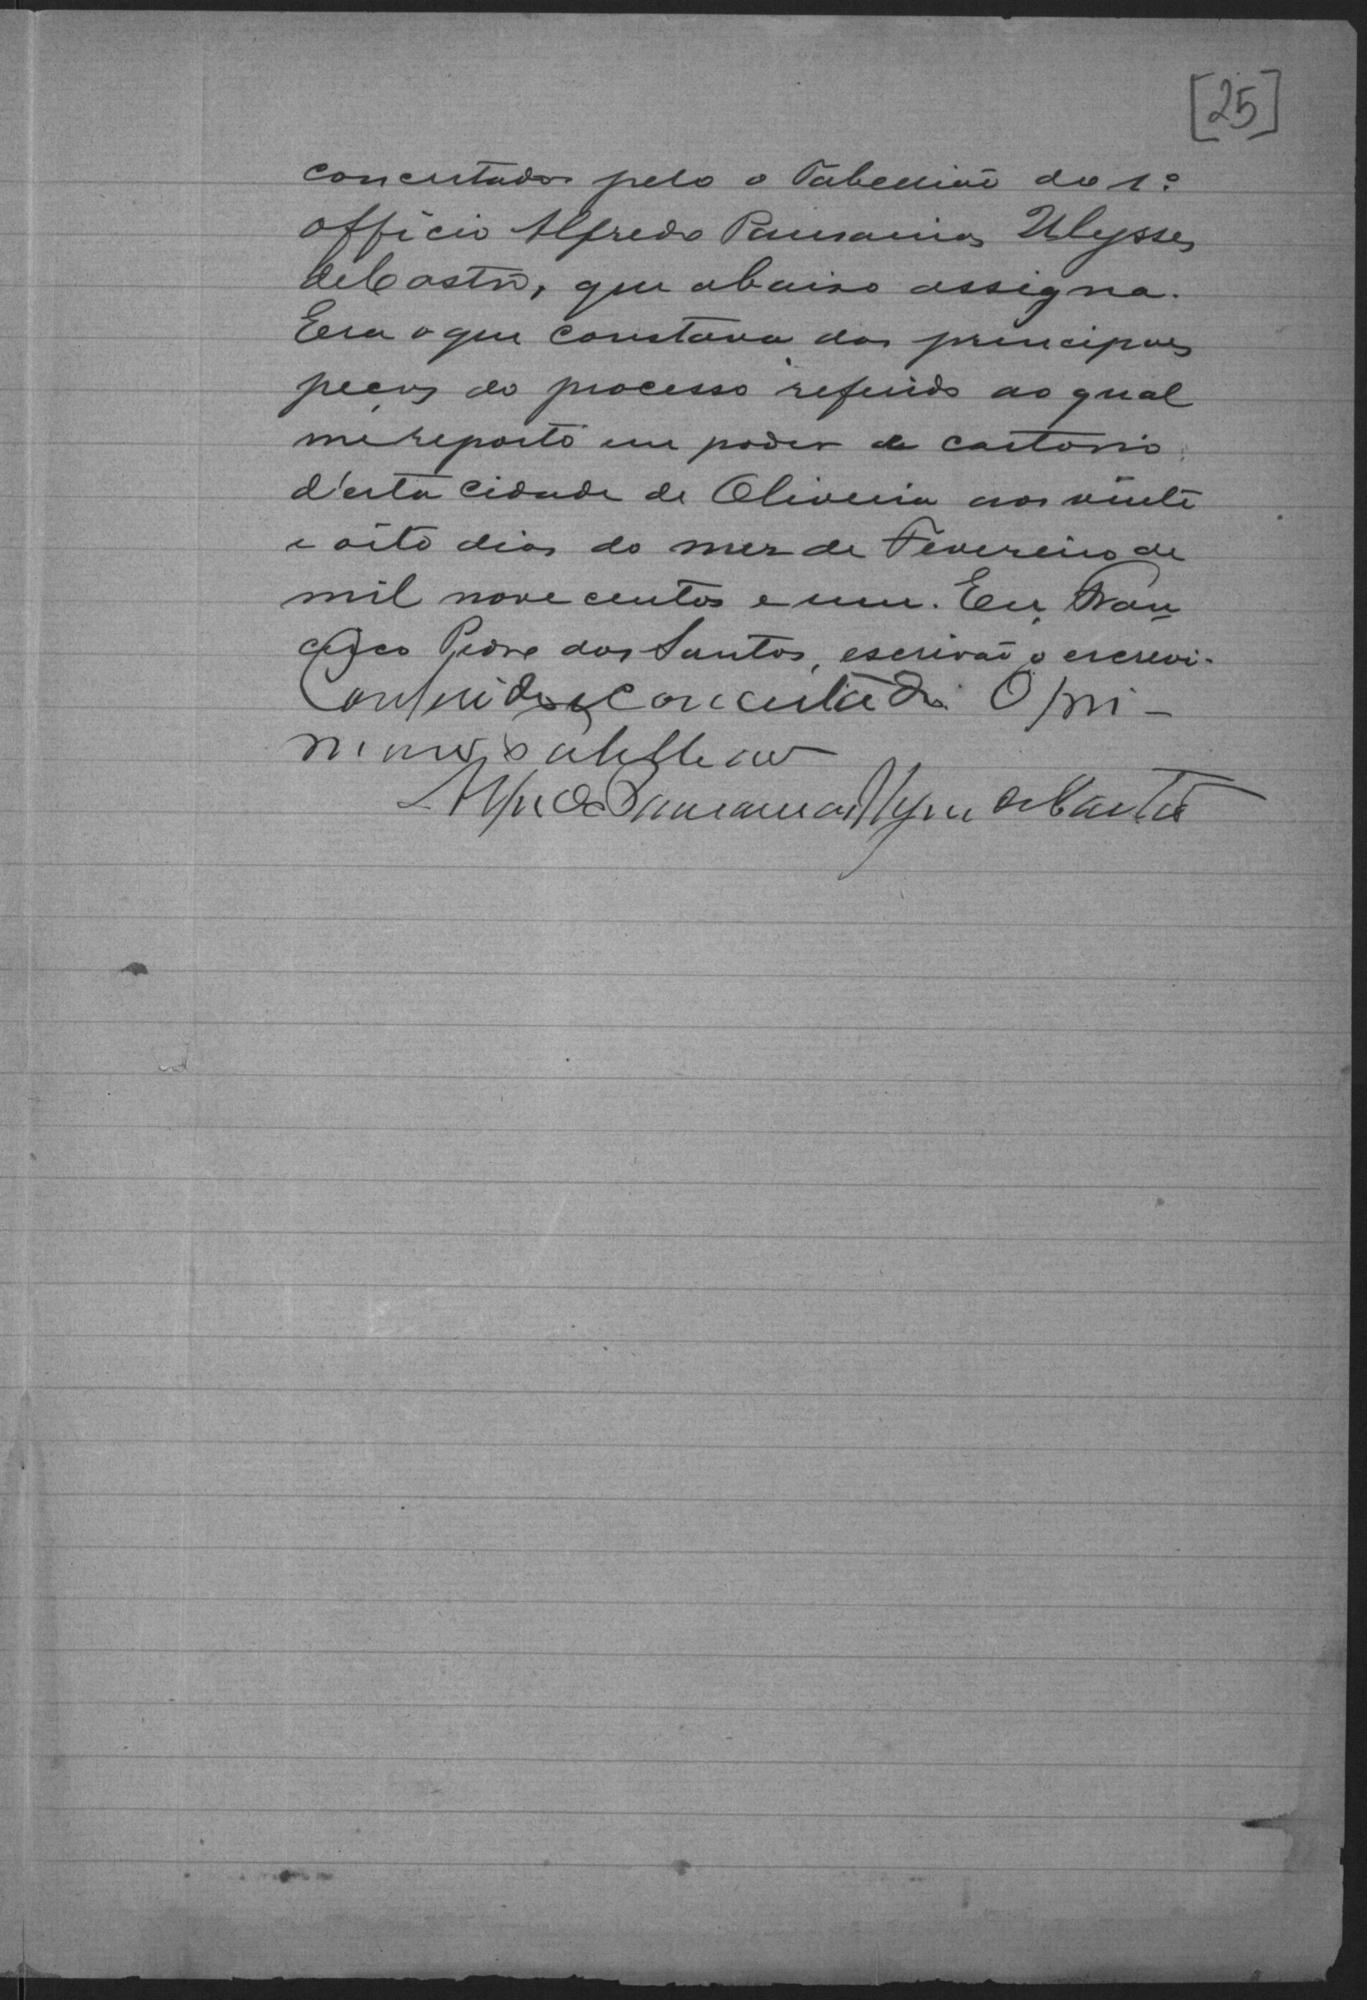 [25]
concertados pelo o Tabellião do 1º
officio Alfredo Pausanias Ulysses
de Castro, que abaixo assigna.
Era o que constava das principaes
peças do processo referido ao qual
me reporto em poder de cartorio
d'esta cidade de Oliveira aos vinte
e oito dias do mez de Fevereiro de
mil nove centos e um. Eu, Fran
cisco Pedro dos Santos, escrivão o escrevi.
Conferido e concertado. O pri-
Alfredo Pausanias Ulysses de Castro